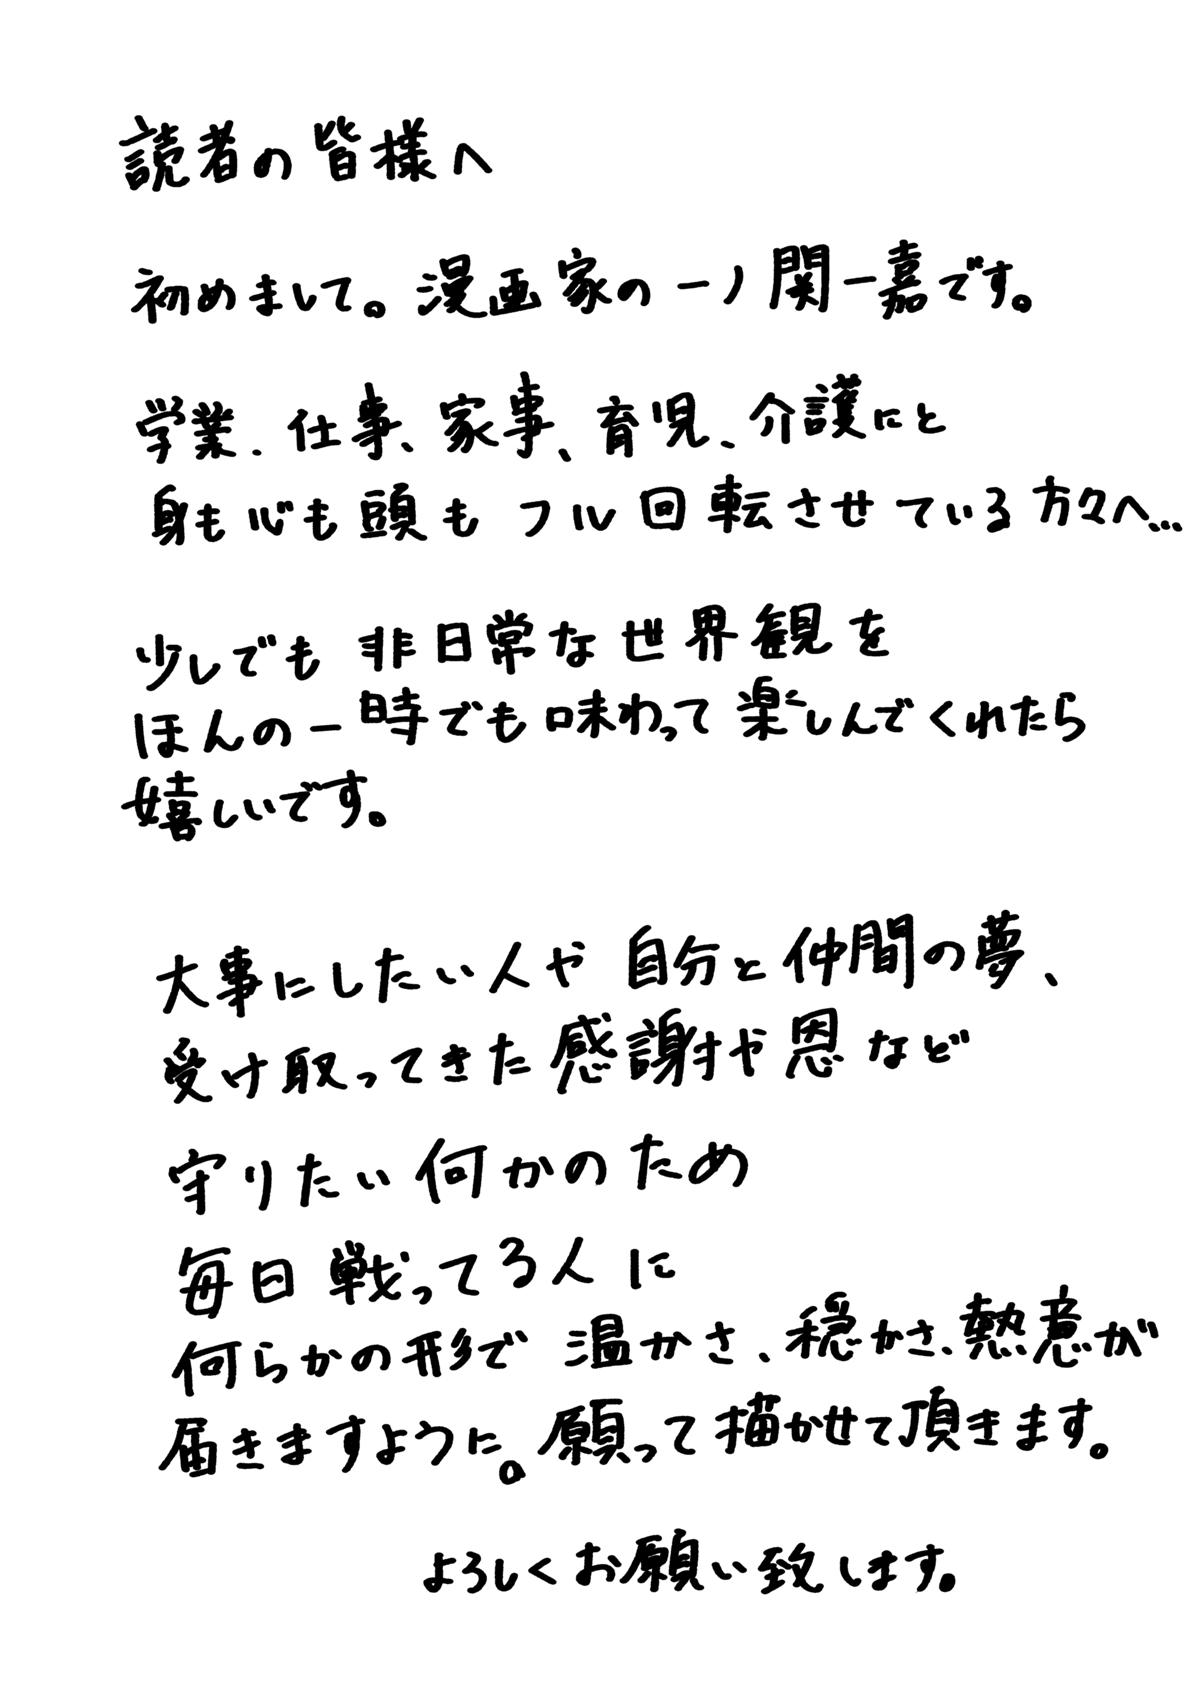 読者の皆様へ
初めまして。漫画家の一ノ関一嘉です。
学業、仕事、家事、育児、介護にと
身も心も頭もフル回転させている方々へ…
少しでも非日常な世界観を
ほんの一時でも味わって楽しんでくれたら
嬉しいです。
大事にしたい人や自分と仲間の夢、
受け取ってきた感謝や恩など
守りたい何かのため
毎日戦ってる人に
何らかの形で温かさ、穏かさ、熱意が
届きますように。願って描かせて頂きます。
よろしくお願い致します。